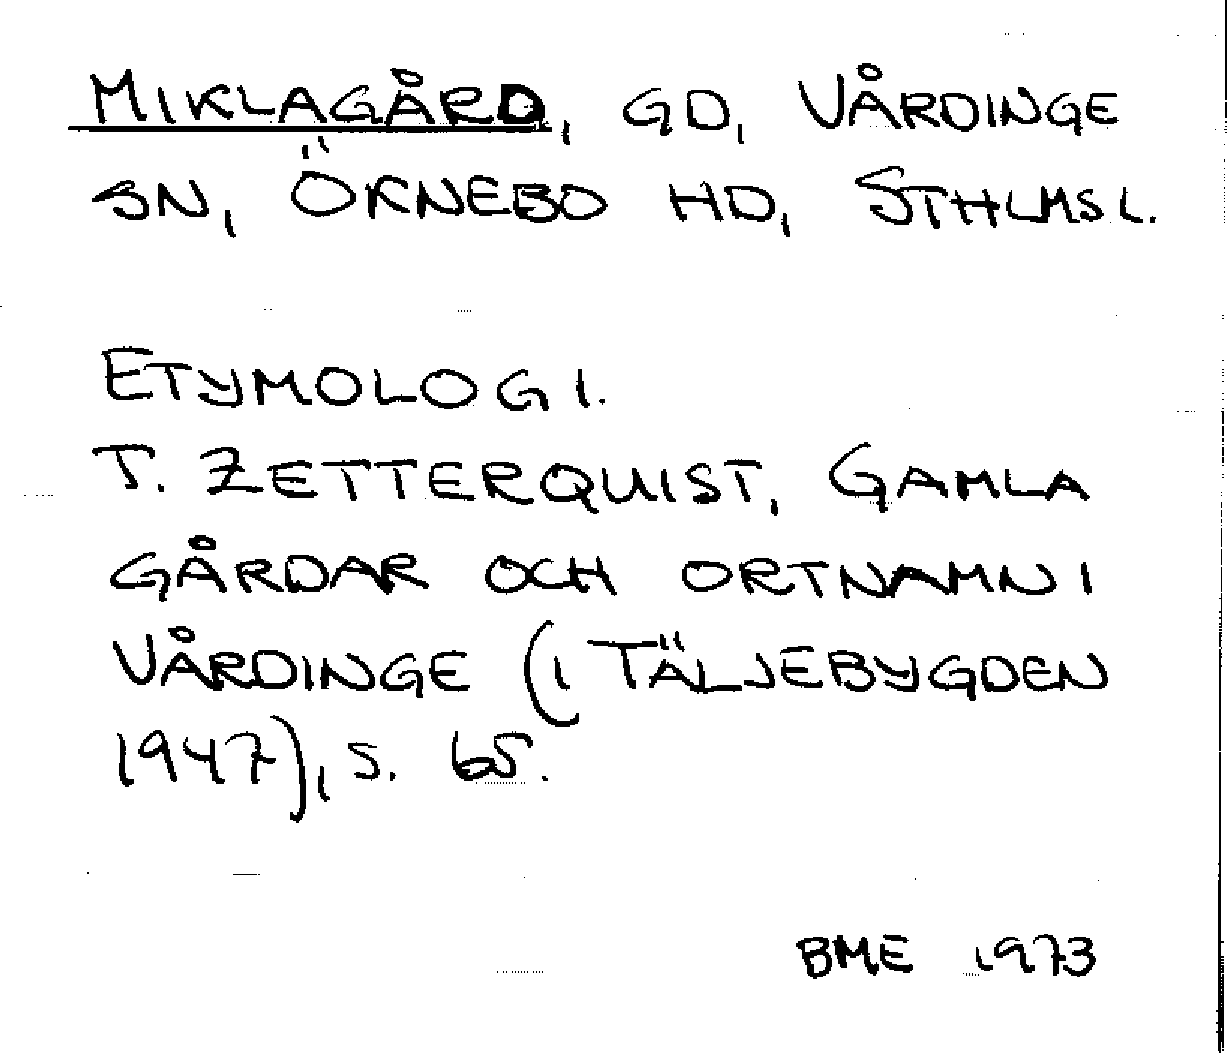 MIKLAGÅRD, GD, VÅRDINGE
SN, ÖKNEBO HD, STHLMS L.
ETYMOLOGI.
T. ZETTERQUIST, GAMLA
GÅRDAR OCH ORTNAMN I
VÅRDINGE (I TÄLJEBYGDEN
1947), S. 65.
BME 1973